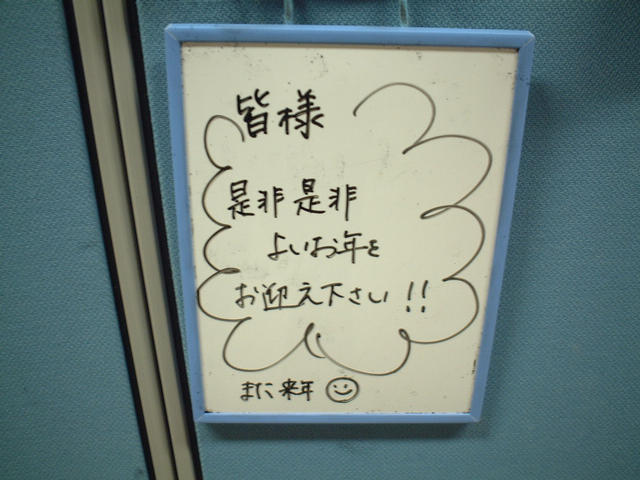 皆様
是非是非
よいお年を
お迎え下さい!!
また来年